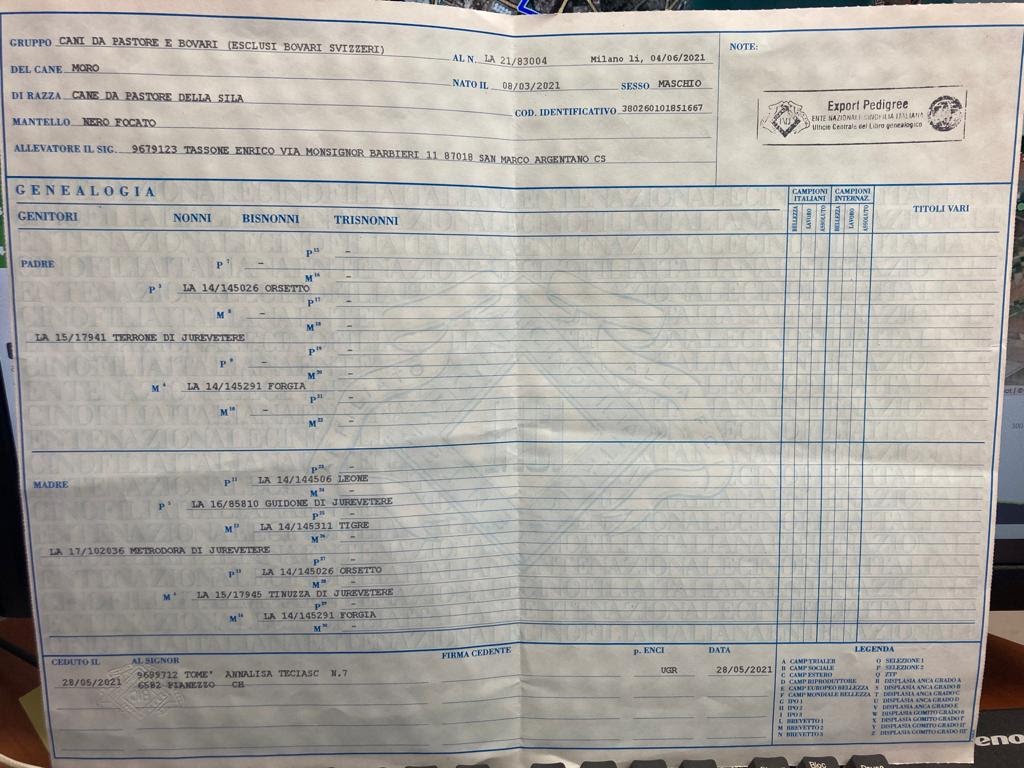 GRUPPO CANI DA PASTORE E BOVARI (ESCLUSI BOVARI SVIZZERI)
AL N. LA 21/83004 Milano li, 04/06/2021
NOTE:
DEL CANE MORO
NATO IL 08/03/2021 SESSO MASCHIO
DI RAZZA CANE DA PASTORE DELLA SILA
COD. IDENTIFICATIVO 380260101851667
MANTELLO NERO FOCATO
ALLEVATORE IL SIG. 9679123 TASSONE ENRICO VIA MONSIGNOR BARBIERI 11 87018 SAN MARCO ARGENTANO CS
Export Pedigree
ENTE NAZIONALE CINOFILIA ITALIANA
Ufficio Centrale del Libro genealogico
GENEALOGIA
GENITORI NONNI BISNONNI TRISNONNI
CAMPIONI ITALIANI
CAMPIONI INTERNAZ.
BELLEZZA LAVORO ASSOLUTO BELLEZZA LAVORO ASSOLUTO
TITOLI VARI
P 15 -
PADRE
P 7 -
M 16 -
P 3 LA 14/145026 ORSETTO
P 17 -
M 8 -
M 18 -
LA 15/17941 TERRONE DI JUREVETERE
P 19 -
P 9 -
M 20 -
M 4 LA 14/145291 FORGIA
P 21 -
M 10 -
M 22 -
P 23 -
MADRE
P 11 LA 14/144506 LEONE
M 24 -
P 5 LA 16/85810 GUIDONE DI JUREVETERE
P 25 -
M 12 LA 14/145311 TIGRE
M 26 -
LA 17/102036 METRODORA DI JUREVETERE
P 27 -
P 13 LA 14/145026 ORSETTO
M 28 -
M 6 LA 15/17945 TINUZZA DI JUREVETERE
P 29 -
M 14 LA 14/145291 FORGIA
M 30 -
CEDUTO IL AL SIGNOR FIRMA CEDENTE p. ENCI DATA
28/05/2021 9689712 TOME' ANNALISA TECIASC N.7
6582 PIANEZZO CH
UGR 28/05/2021
LEGENDA
A CAMP TRIALER
B CAMP SOCIALE
C CAMP ESTERO
D CAMP RIPRODUTTORE
E CAMP EUROPEO BELLEZZA
F CAMP MONDIALE BELLEZZA
G IPO 1
H IPO 2
I IPO 3
L BREVETTO 1
M BREVETTO 2
N BREVETTO 3
O SELEZIONE 1
P SELEZIONE 2
Q ZTP
R DISPLASIA ANCA GRADO A
S DISPLASIA ANCA GRADO B
T DISPLASIA ANCA GRADO C
U DISPLASIA ANCA GRADO D
V DISPLASIA ANCA GRADO E
W DISPLASIA GOMITO GRADO 0
X DISPLASIA GOMITO GRADO I°
Y DISPLASIA GOMITO GRADO II°
Z DISPLASIA GOMITO GRADO III°
eno
Bloc